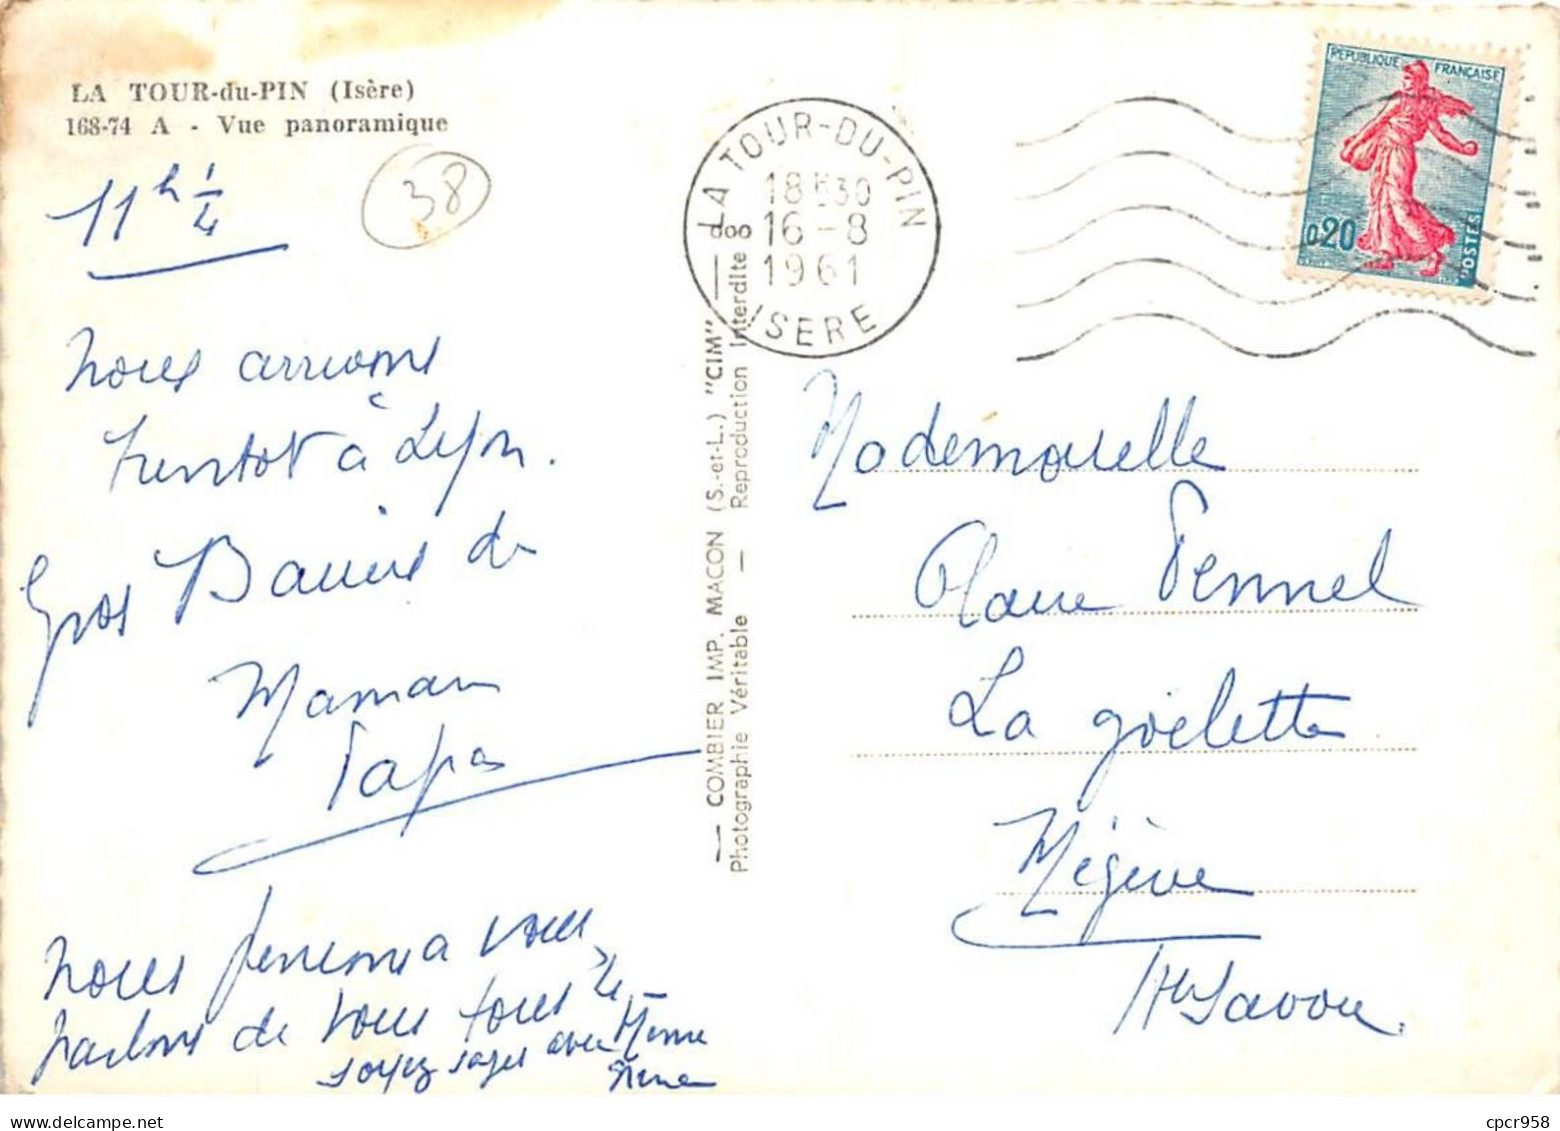 LA TOUR-du-PIN (Isère)
168-74 A - Vue panoramique
11 h 1/4
38
Nous arrivons
bientot à Lyon.
Gros Baisers de
Maman
Papa
Nous pensons a vous
parlons de vous tous
soyez sages avec Mème
— COMBIER IMP. MACON (S.-et-L.) "CIM"
Photographie Véritable — Reproduction Interdite
LA TOUR-DU-PIN
18 H 30
16-8
1961
ISERE
REPUBLIQUE FRANÇAISE
0,20
POSTES
Mademoiselle
Claire Pennel
La goëlette
Mégève
Hte Savoie.
cpcr958